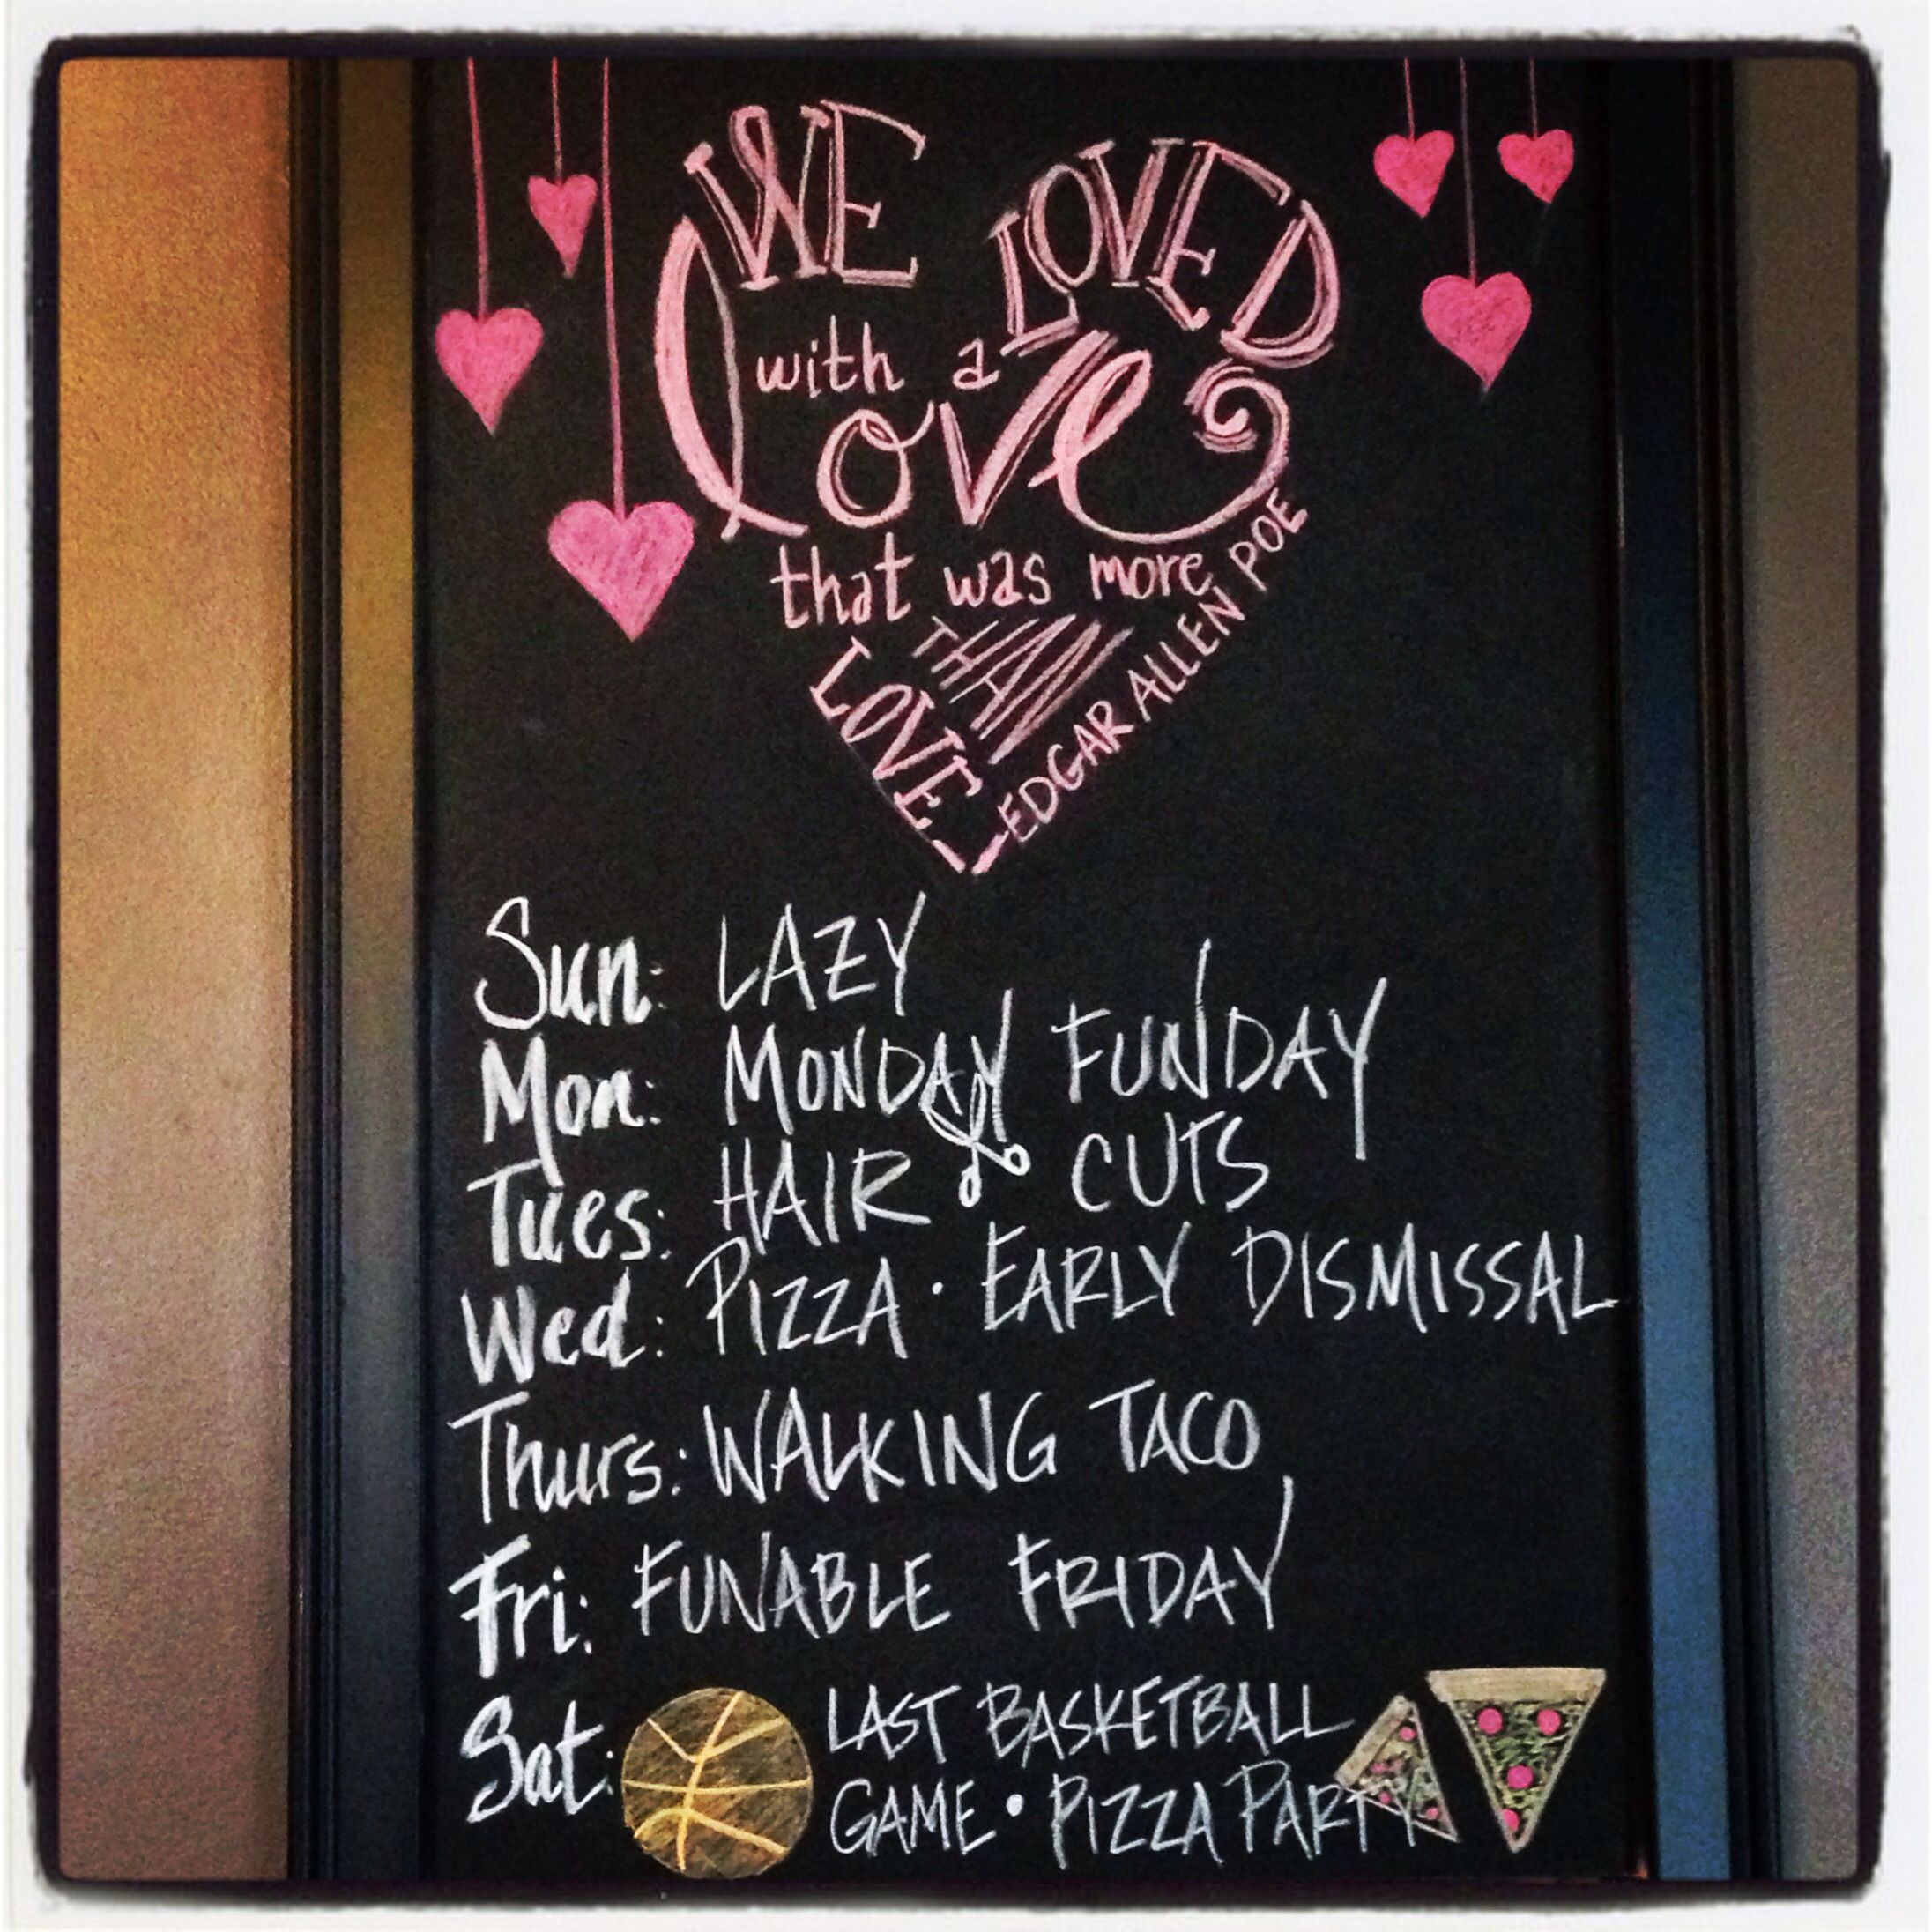 WE LOVED
with a
love
that was more
THAN
LOVE
-EDGAR ALLEN POE
Sun: LAZY
Mon: MONDAY FUNDAY
Tues: HAIR CUTS
Wed: PIZZA • EARLY DISMISSAL
Thurs: WALKING TACO
Fri: FUNABLE FRIDAY
Sat: LAST BASKETBALL
GAME • PIZZA PARTY